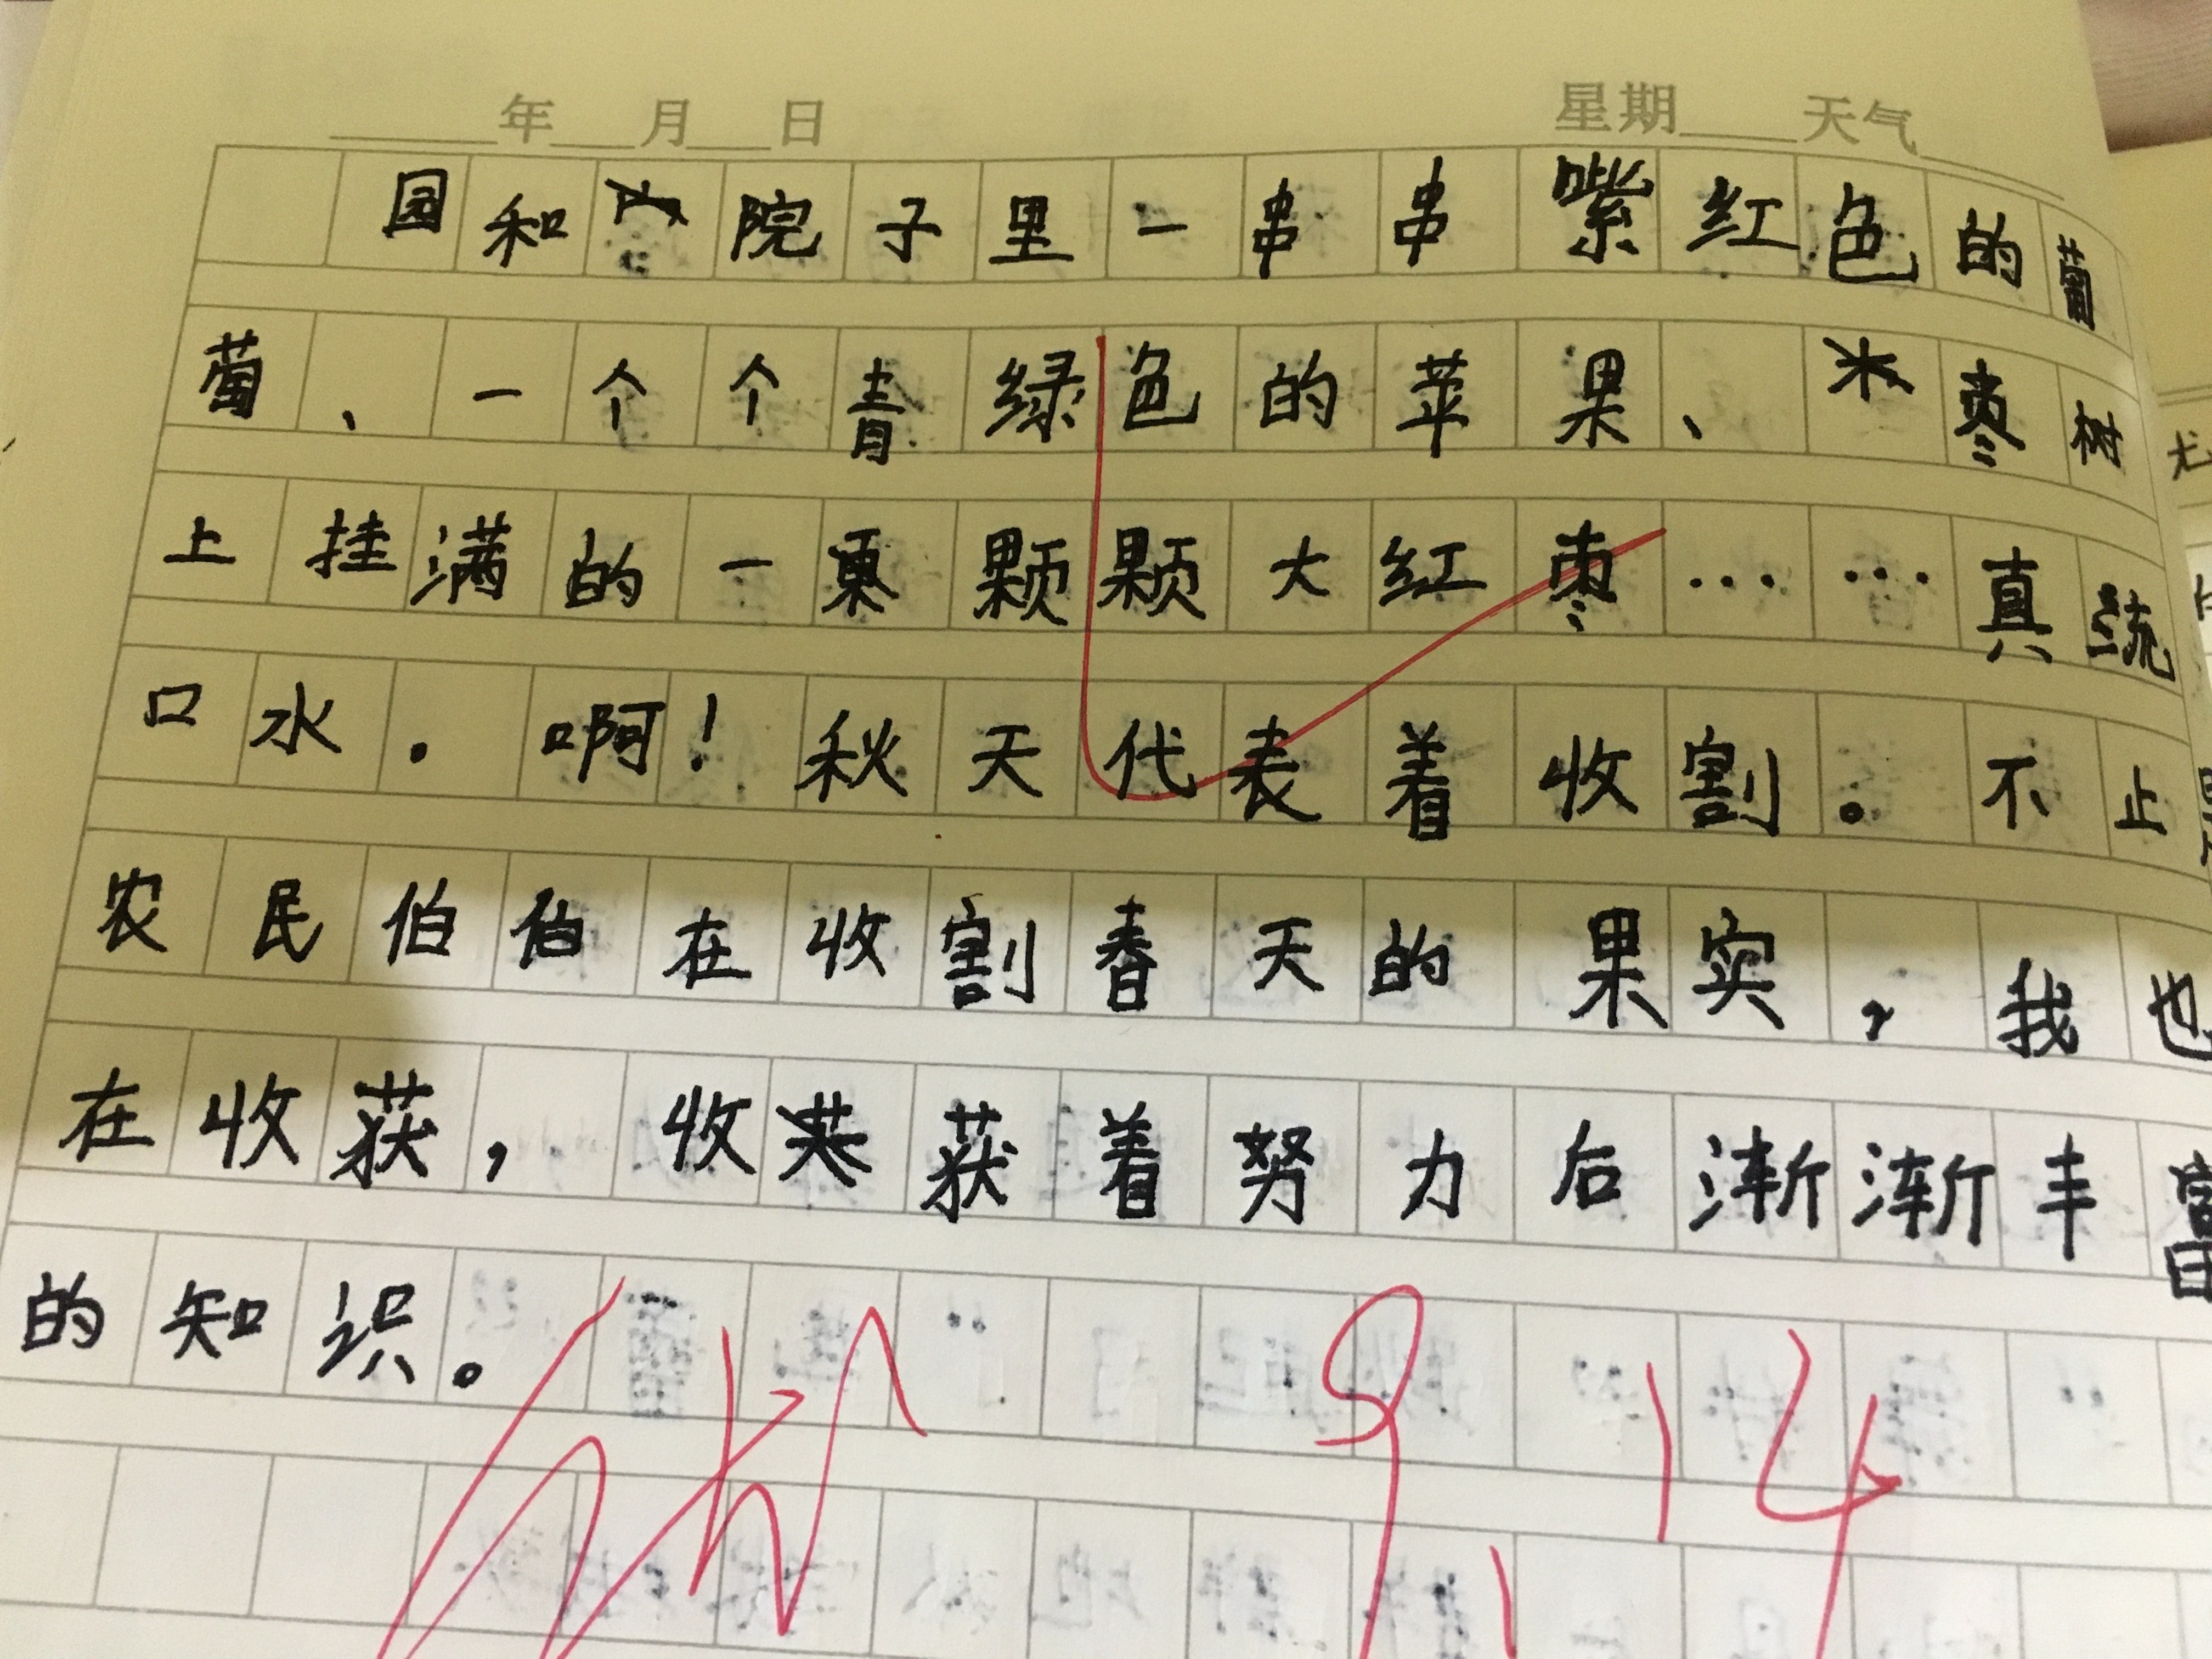 年 月 日 星期 天气
园和院子里一串串紫红色的葡
萄、一个个青绿色的苹果、枣树
上挂满的一颗颗大红枣……真
口水。啊！秋天代表着收割。不止
农民伯伯在收割春天的果实，我也
在收获，收获着努力后渐渐丰富
的知识。
9.14